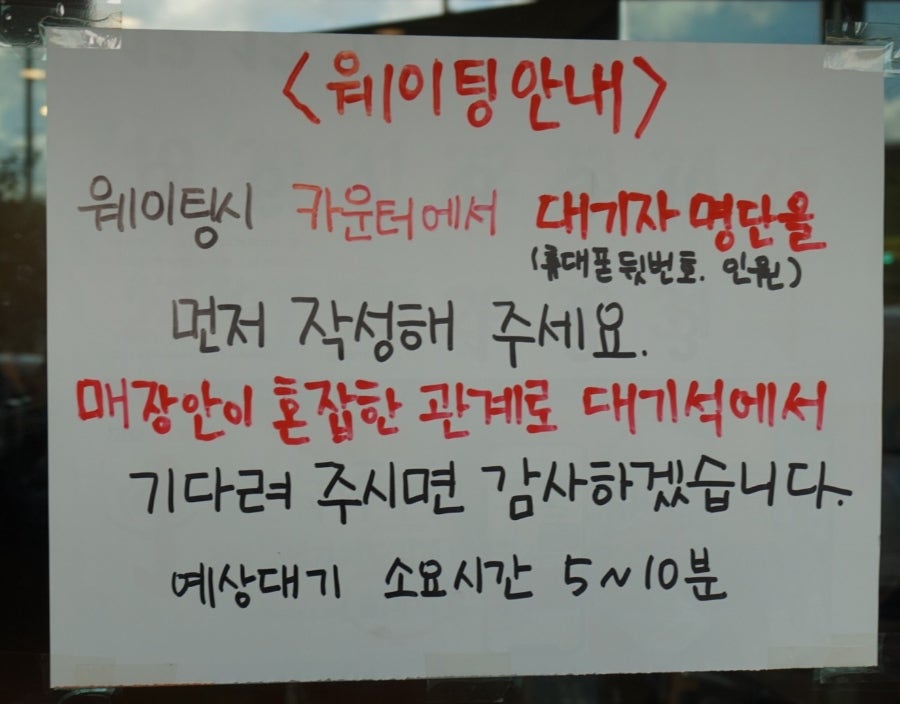 <웨이팅안내>
웨이팅시 카운터에서 대기자 명단을
(휴대폰 뒷번호. 인원)
먼저 작성해 주세요.
매장안이 혼잡한 관계로 대기석에서
기다려 주시면 감사하겠습니다.
예상대기 소요시간 5~10분